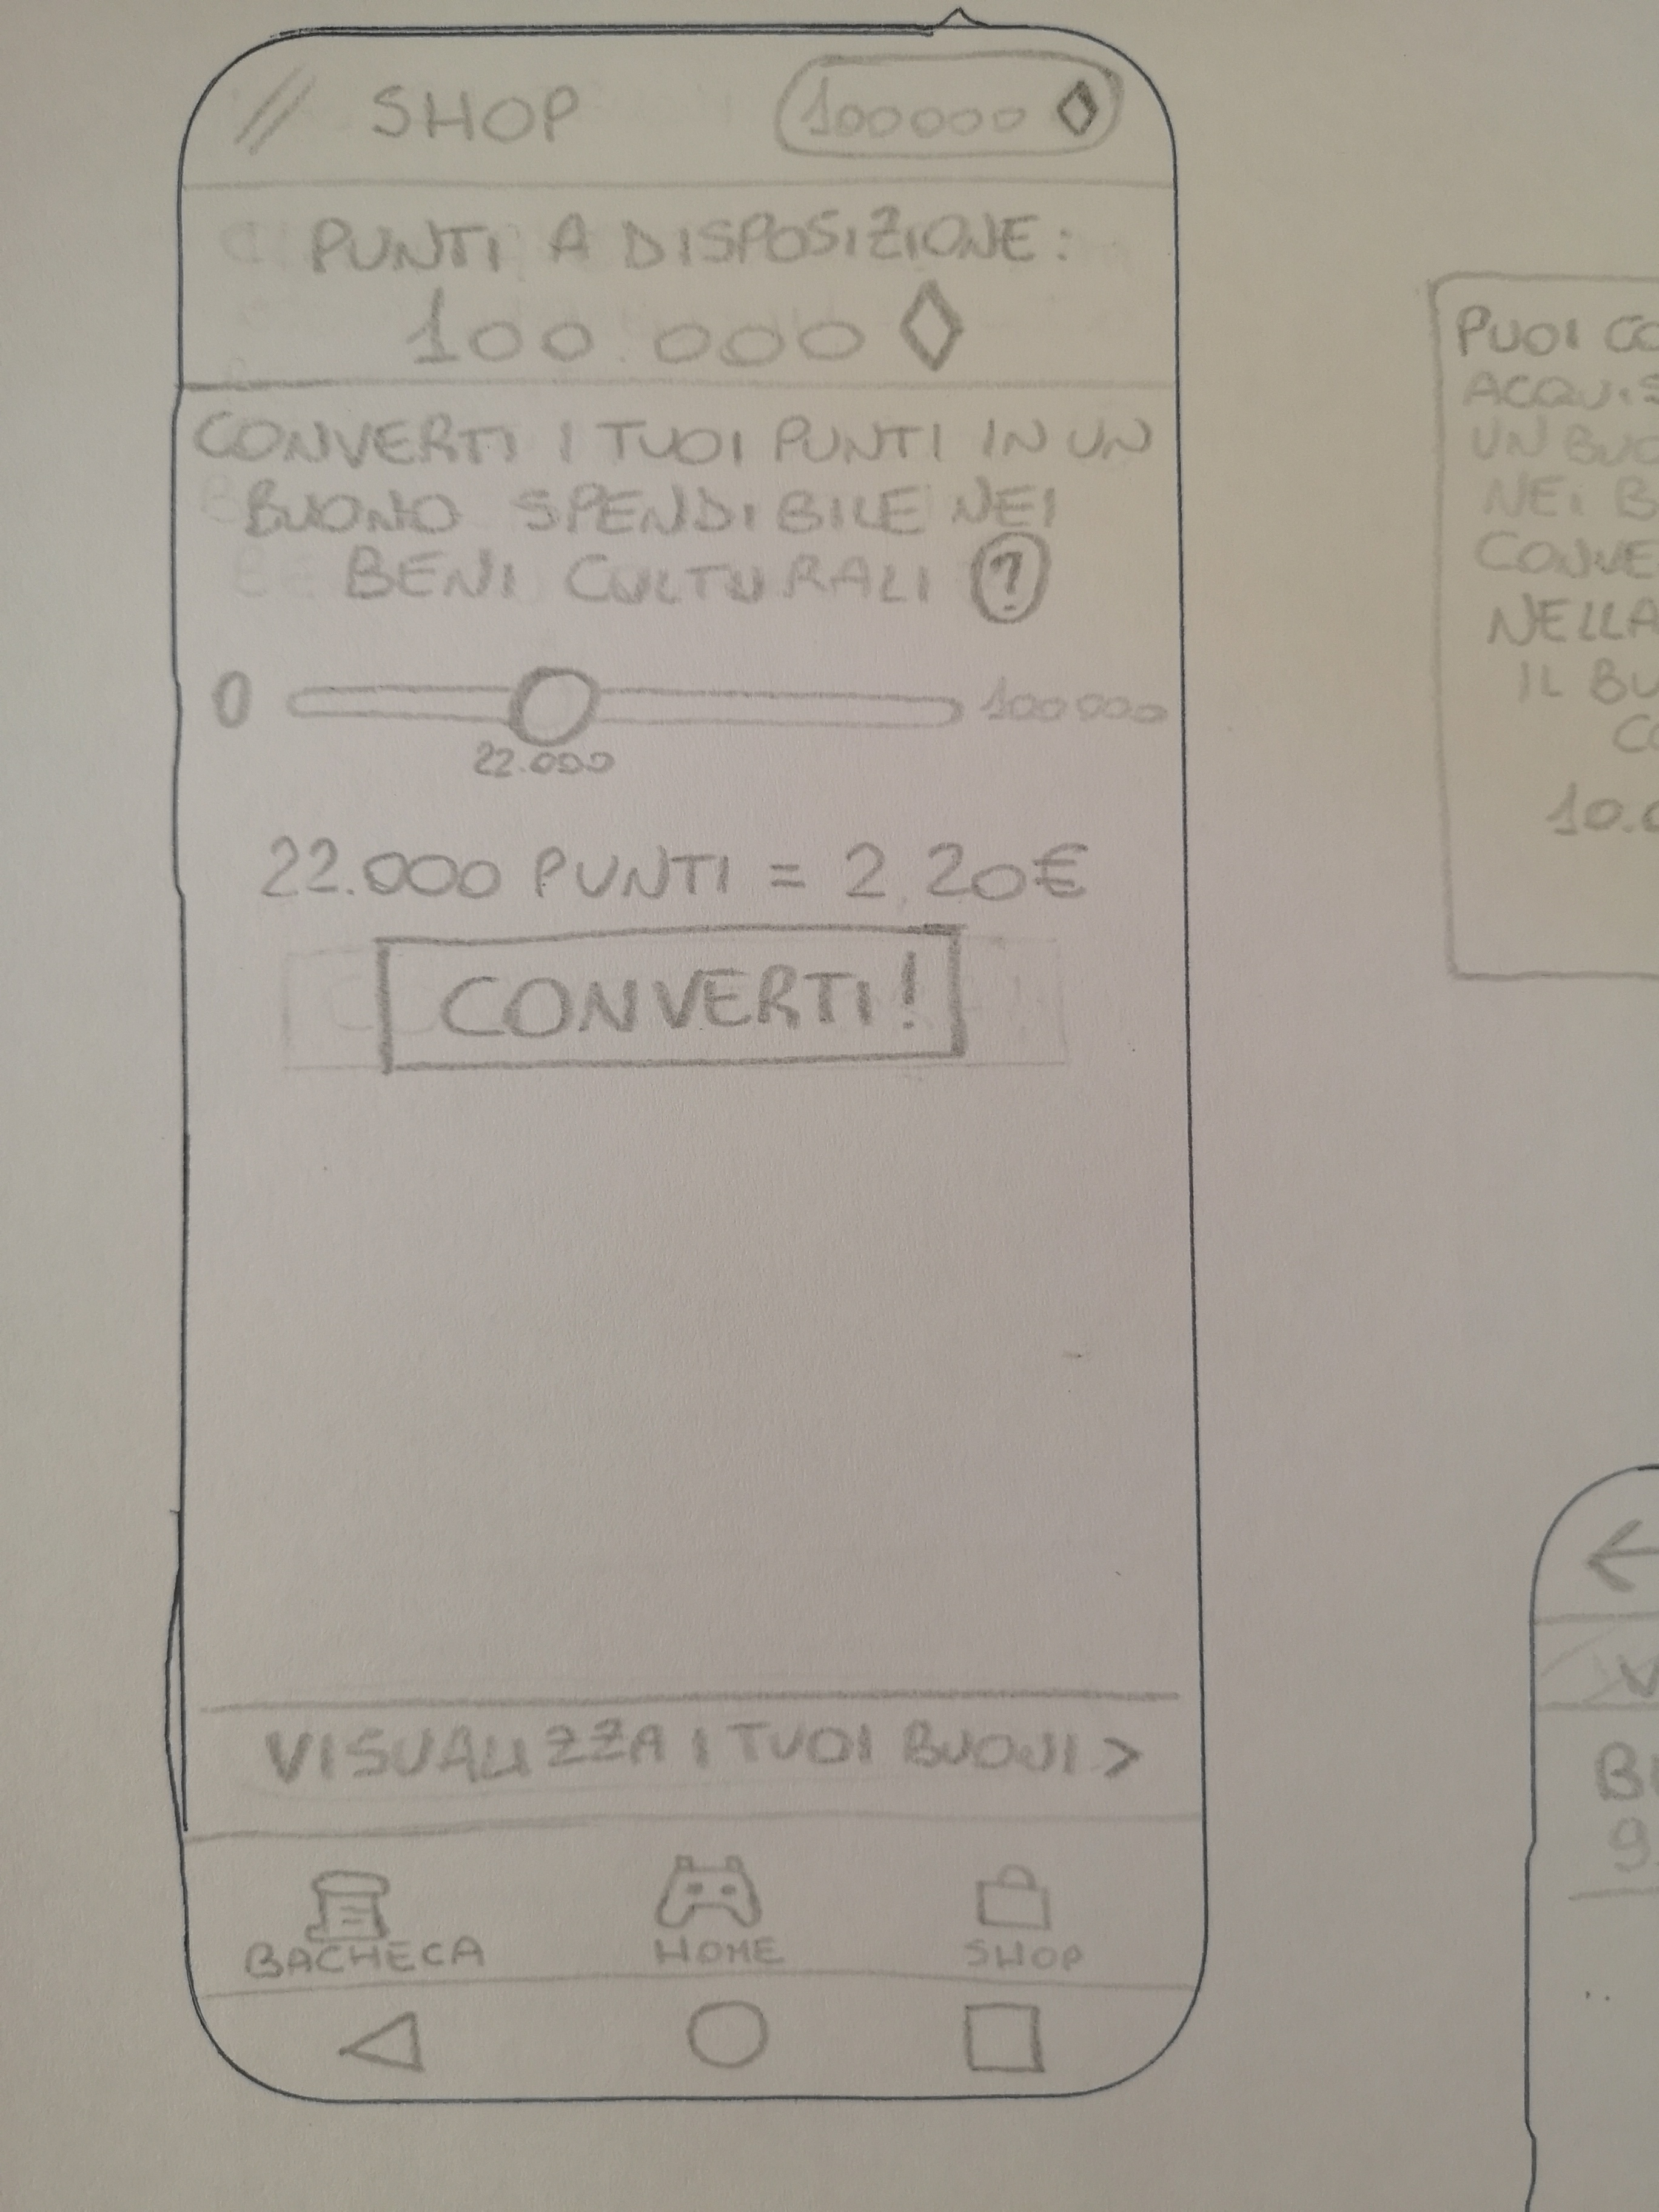 SHOP
100000
PUNTI A DISPOSIZIONE:
100.000
CONVERTI I TUOI PUNTI IN UN
BUONO SPENDIBILE NEI
BENI CULTURALI ?
0 100000
22.000
22.000 PUNTI = 2,20€
CONVERTI!
VISUALIZZA I TUOI BUONI >
BACHECA HOME SHOP
PUOI CO
ACQUIS
UN BUO
NEI B
CONVE
NELLA
IL BU
CO
10.0
V
BU
9